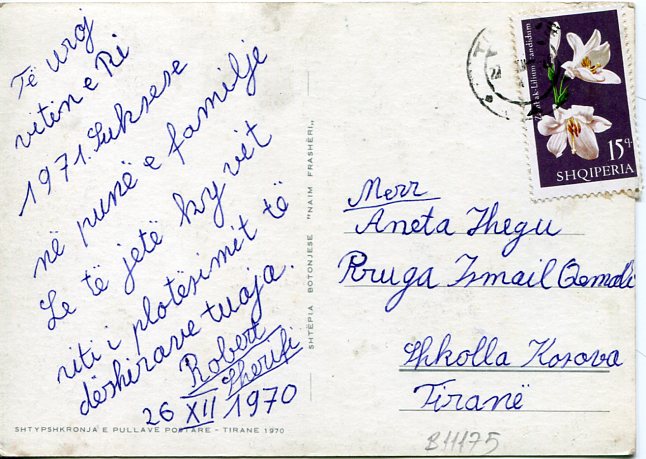 Të uroj
vitin e Ri
1971. Suksese
në punë e familje
Le të jetë ky vit
viti i plotësimit të
dëshirave tuaja.
Robert
Sherifi
26 XII 1970
SHTYPSHKRONJA E PULLAVE POSTARE - TIRANE 1970
SHTËPIA BOTONJESE "NAIM FRASHËRI"
Lilium candidum
15q
SHQIPERIA
Merr
Aneta Shegu
Rruga Ismail Qemali
Shkolla Kosova
Tiranë
B11175